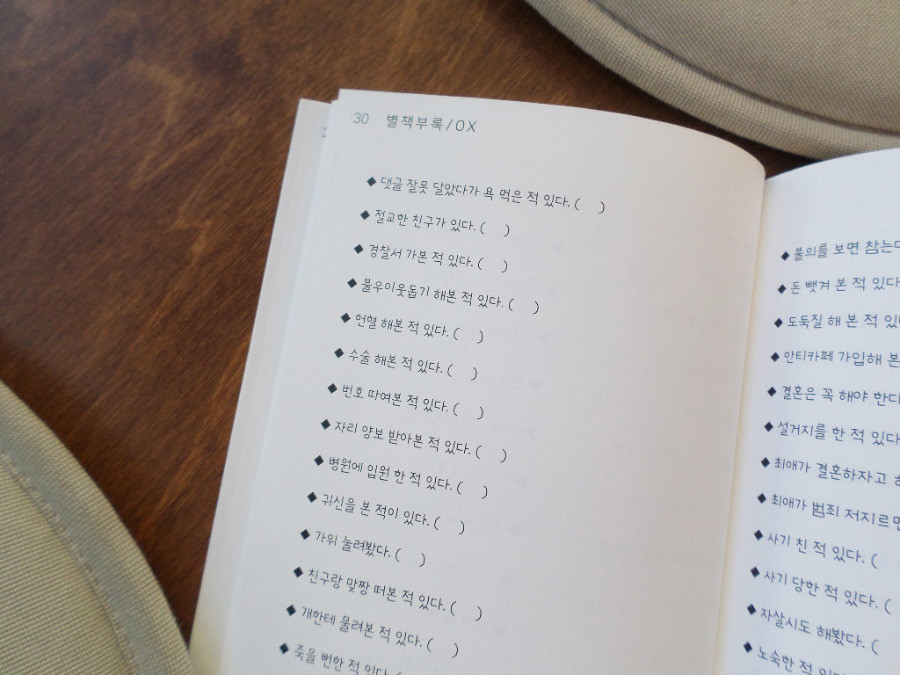 30 별책부록/OX
◆ 댓글 잘못 달았다가 욕 먹은 적 있다. ( )
◆ 절교한 친구가 있다. ( )
◆ 경찰서 가본 적 있다. ( )
◆ 불우이웃돕기 해본 적 있다. ( )
◆ 헌혈 해본 적 있다. ( )
◆ 수술 해본 적 있다. ( )
◆ 번호 따여본 적 있다. ( )
◆ 자리 양보 받아본 적 있다. ( )
◆ 병원에 입원 한 적 있다. ( )
◆ 귀신을 본 적이 있다. ( )
◆ 가위 눌려봤다. ( )
◆ 친구랑 맞짱 떠본 적 있다. ( )
◆ 개한테 물려본 적 있다. ( )
◆ 죽을 뻔한 적 있다. (
◆ 불의를 보면 참는다
◆ 돈 뺏겨 본 적 있다
◆ 도둑질 해 본 적 있
◆ 안티카페 가입해 본
◆ 결혼은 꼭 해야 한다
◆ 설거지를 한 적 있다
◆ 최애가 결혼하자고 하
◆ 최애가 범죄 저지르면
◆ 사기 친 적 있다. (
◆ 사기 당한 적 있다. (
◆ 자살시도 해봤다. (
◆ 노숙한 적 있다.